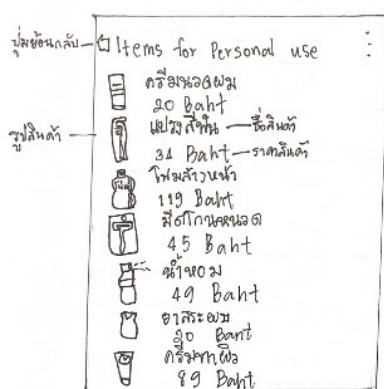 ปุ่มย้อนกลับ
Items for Personal use
ครีมนวดผม
20 Baht
แปรงสีฟัน
ชื่อสินค้า
รูปสินค้า
34 Baht
ราคาสินค้า
โฟมล้างหน้า
119 Baht
มีดโกนหนวด
45 Baht
น้ำหอม
49 Baht
ยาสระผม
20 Baht
ครีมทาผิว
89 Baht